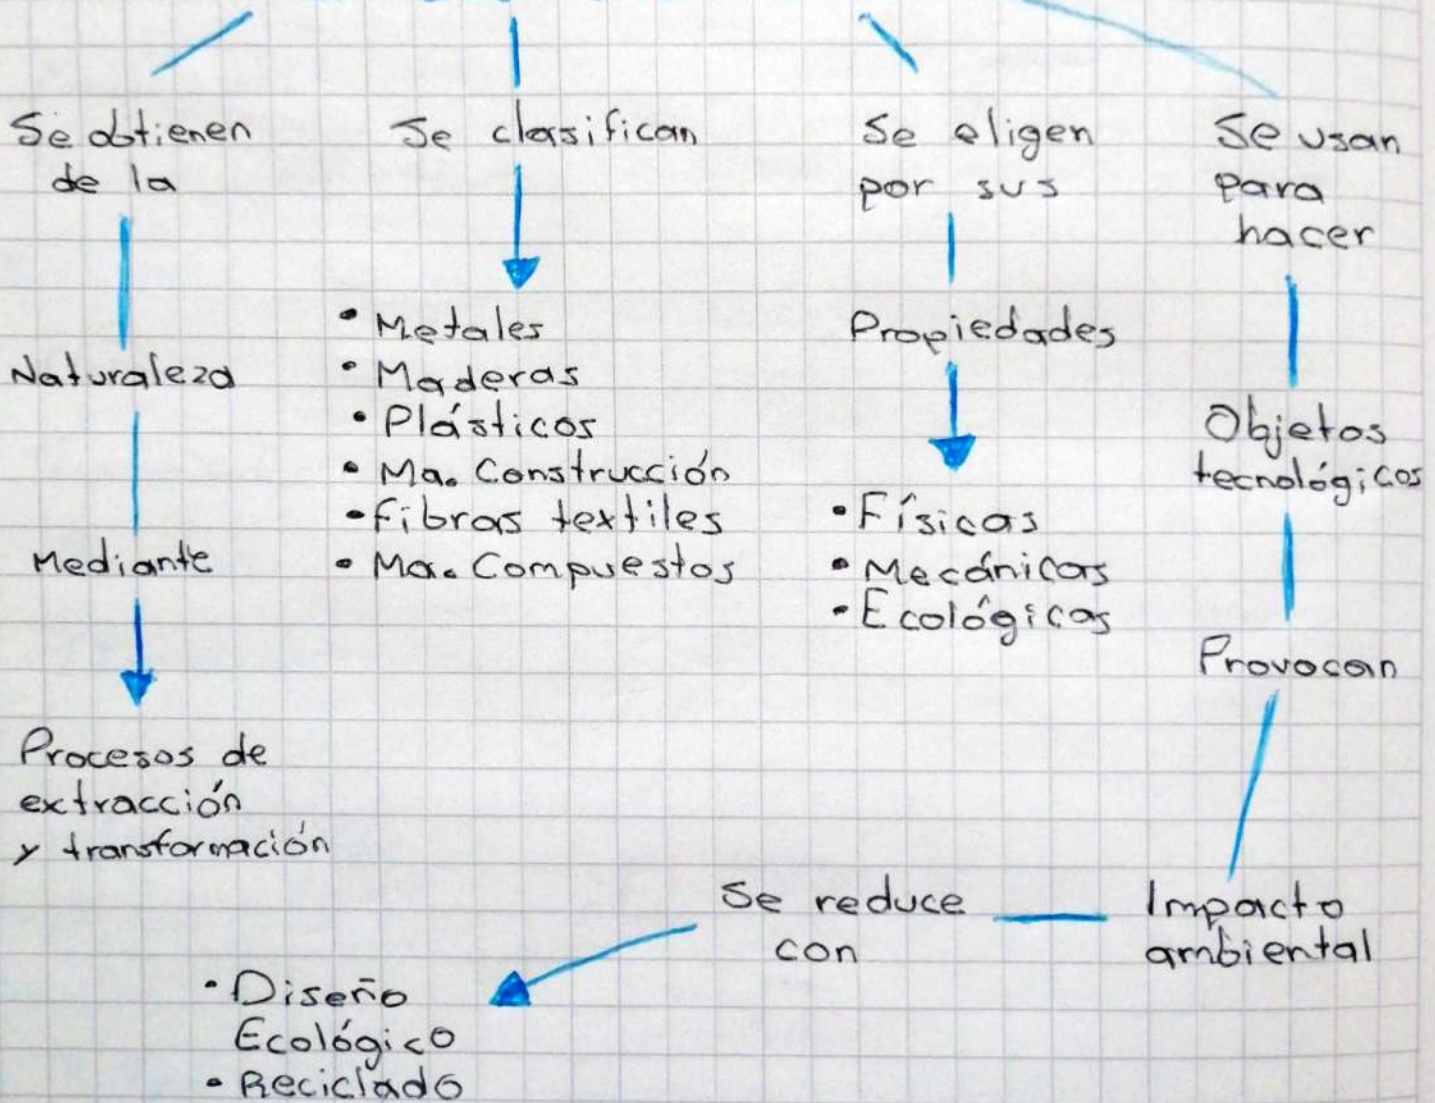 Se obtienen
de la
Naturaleza
Mediante
Procesos de
extracción
y transformación
Se clasifican
• Metales
• Maderas
• Plásticos
• Ma. Construcción
• Fibras textiles
• Ma. Compuestos
Se eligen
por sus
Propiedades
• Físicas
• Mecánicas
• Ecológicas
Se usan
para
hacer
Objetos
tecnológicos
Provocan
Impacto
ambiental
Se reduce
con
• Diseño
Ecológico
• Reciclado